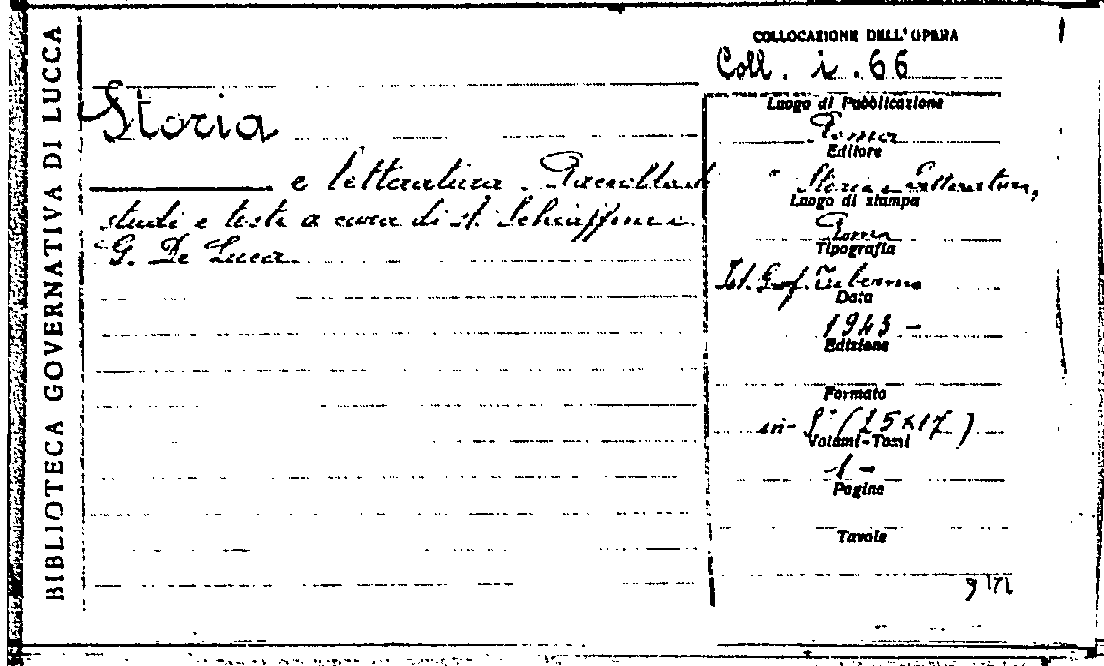 BIBLIOTECA GOVERNATIVA DI LUCCA
Storia
e letteratura. Raccolta di
studi e testi a cura di A. Schiaffini e
G. De Luca
COLLOCAZIONE DELL'OPERA
Coll. i. 66
Luogo di Pubblicazione
Roma
Editore
" Storia e Letteratura,
Luogo di stampa
Roma
Tipografia
Ist. Graf. Tiberino
Data
1943 -
Edizione
Formato
in-8° (25x17)
Volumi-Tomi
1 -
Pagine
Tavole